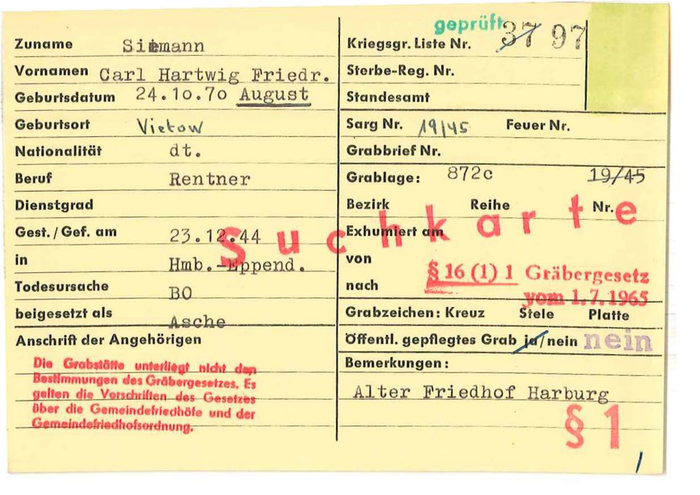 geprüft
Zuname Siemann
Kriegsgr. Liste Nr. 37 97
Vornamen Carl Hartwig Friedr. August
Sterbe-Reg. Nr.
Geburtsdatum 24.10.70
Standesamt
Geburtsort Vietow
Sarg Nr. 19/45 Feuer Nr.
Nationalität dt.
Grabbrief Nr.
Beruf Rentner
Grablage: 872c 19/45
Dienstgrad
Bezirk Reihe Nr.
Suchkarte
Gest./Gef. am 23.12.44
Exhumiert am
in Hmb.-Eppend.
von
§ 16 (1) 1 Gräbergesetz
Todesursache BO
nach
vom 1.7.1965
beigesetzt als Asche
Grabzeichen: Kreuz Stele Platte
Anschrift der Angehörigen
Öffentl. gepflegtes Grab ja/nein nein
Die Grabstätte unterliegt nicht den
Bestimmungen des Gräbergesetzes. Es
gelten die Vorschriften des Gesetzes
über die Gemeindefriedhöfe und der
Gemeindefriedhofsordnung.
Bemerkungen:
Alter Friedhof Harburg
§ 1